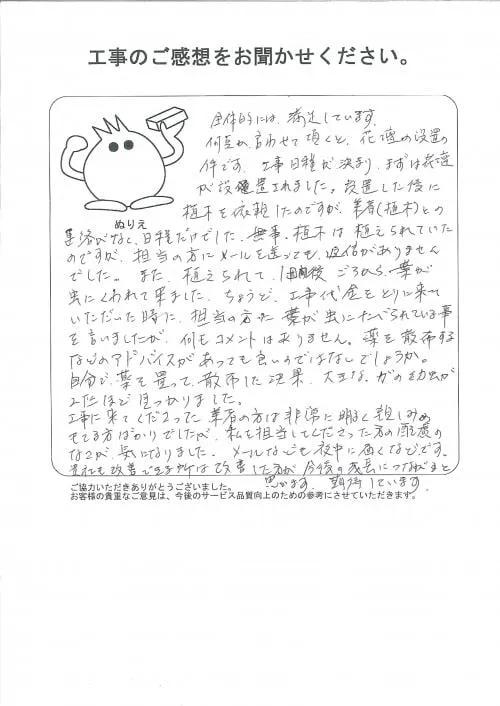 工事のご感想をお聞かせください。
全体的には、満足しています。
何点か言わせて頂くと、花壇の設置の
件です。工事日程が決まり、まずは花壇
が設置されました。設置した後に
植木を依頼したのですが、業者(植木)との
ぬりえ
連絡がなく、日程だけでした。無事、植木は植えられていた
のですが、担当の方にメールを送っても、返信がありません
でした。また、植えられて、1週間後ごろから、葉が
虫にくわれて来ました。ちょうど、工事代金をとりに来て
いただいた時に、担当の方に葉が虫にたべられている事
を言いましたが、何もコメントは有りません。薬を散布する
などのアドバイスがあっても良いのではないでしょうか。
自分で、薬を買って、散布した結果、大きな、ガの幼虫が
2匹ほど見つかりました。
工事に来てくださった業者の方は非常に明るく親しみの
もてる方ばかりでしたが、私を担当してくださった方の配慮の
なさが、気になりました。メールなども夜中に届くなどです。
会社も改善できる所は改善した方が今後の成長につながると
思います。期待しています。
ご協力いただきありがとうございました。
お客様の貴重なご意見は、今後のサービス品質向上のための参考にさせていただきます。